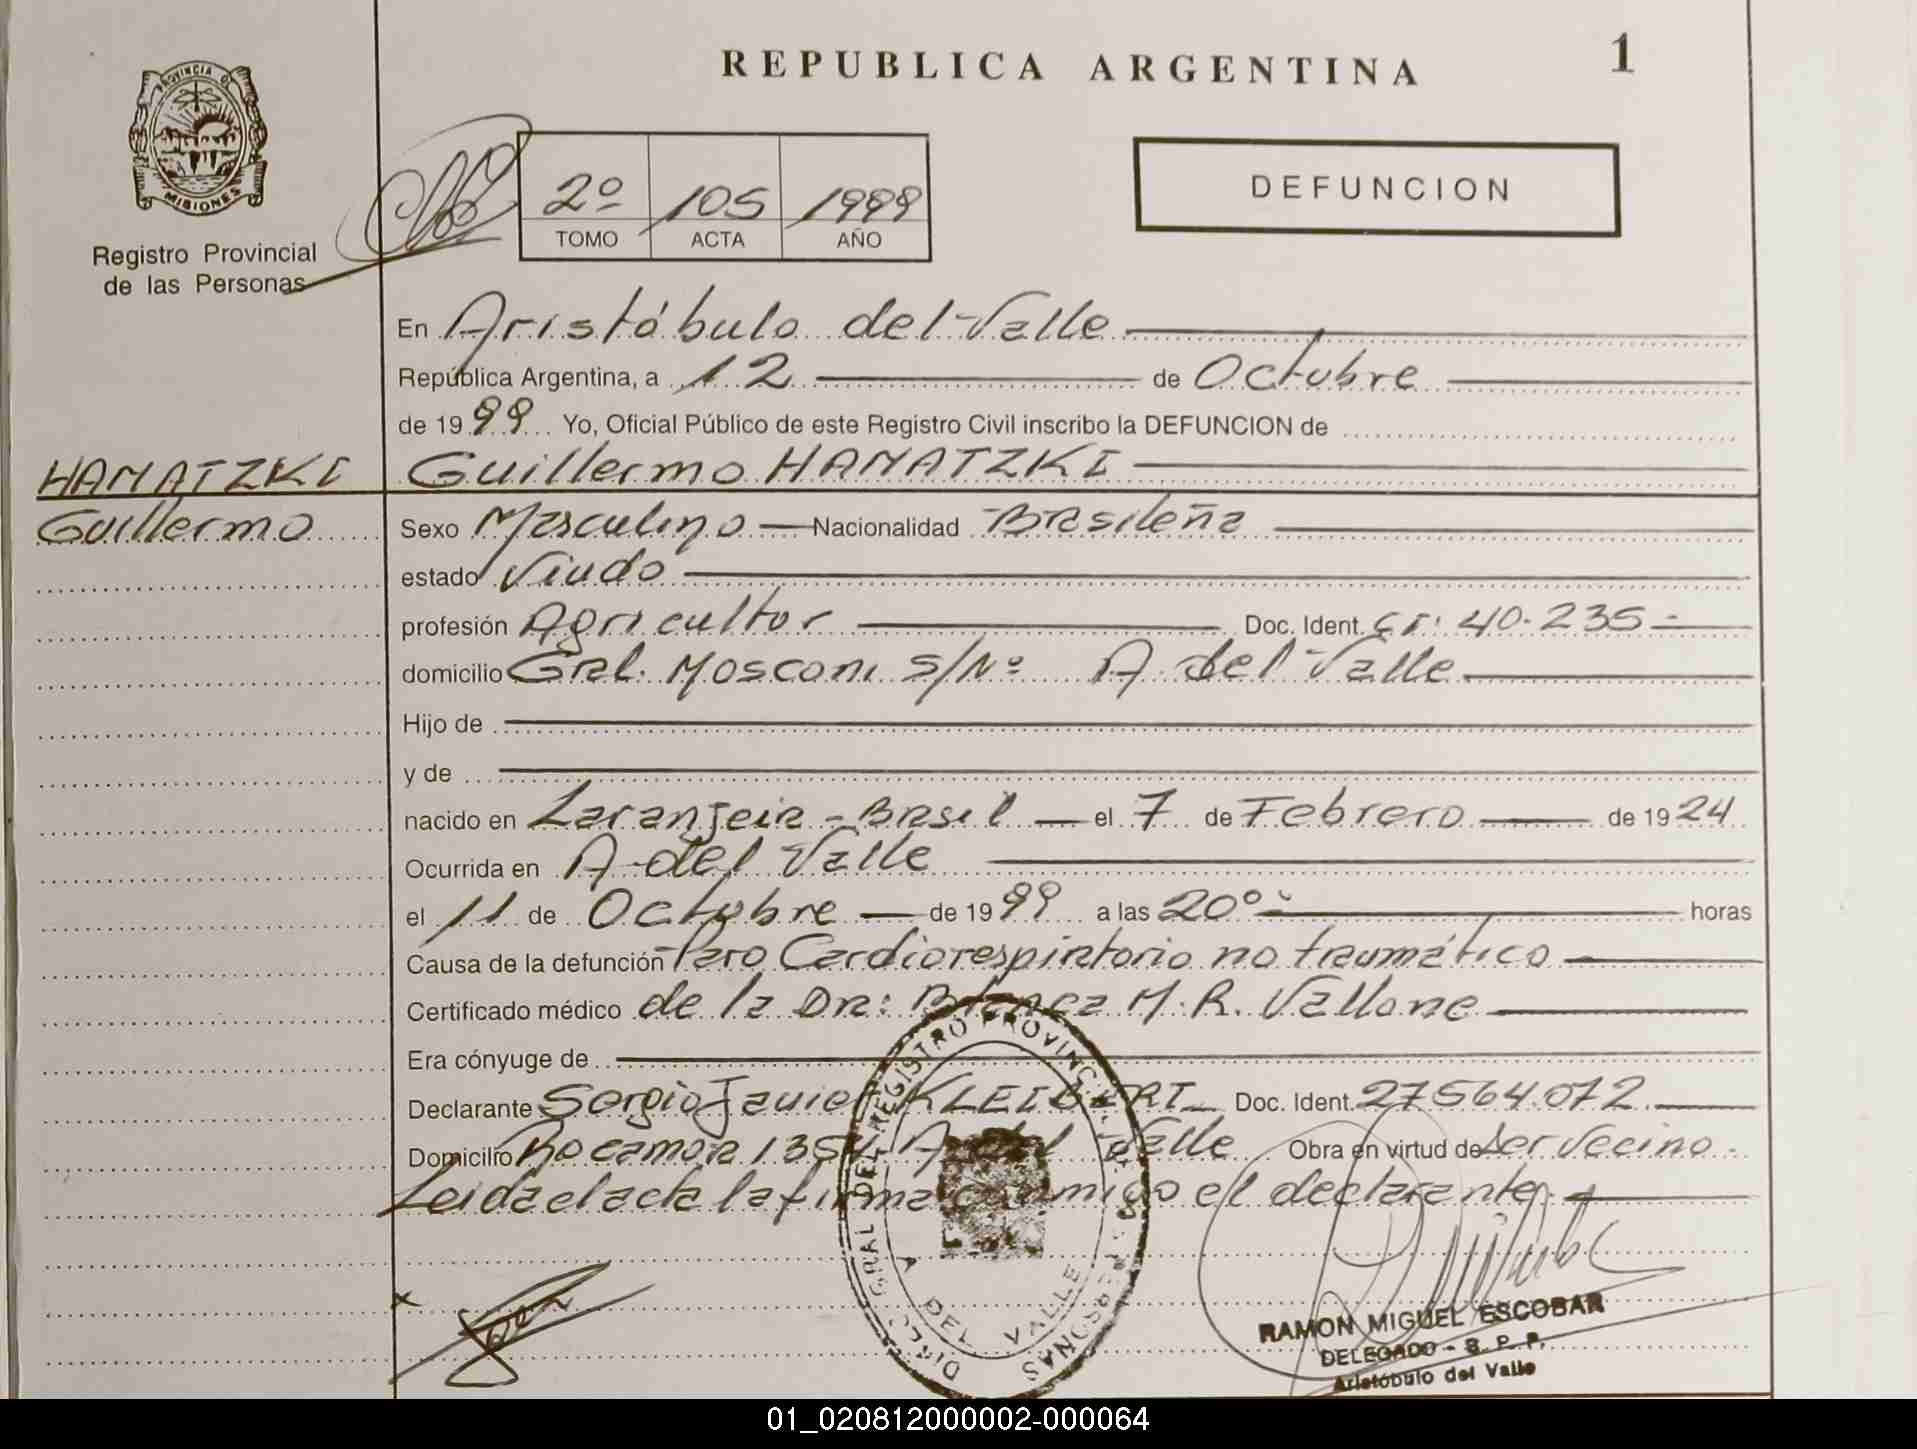 REPUBLICA ARGENTINA
1
PROVINCIA DE
MISIONES
Registro Provincial
de las Personas
2º 105 1999
TOMO ACTA AÑO
DEFUNCION
En Aristóbulo del Valle
República Argentina, a 12 de Octubre
de 1999 Yo, Oficial Público de este Registro Civil inscribo la DEFUNCION de
HANATZKI
Guillermo
Guillermo HANATZKI
Sexo Masculino Nacionalidad Brasileña
estado Viudo
profesión Agricultor Doc. Ident. CI: 40.235
domicilio Gral. Mosconi S/Nº A. del Valle
Hijo de
y de
nacido en Laranjeira - Brasil el 7 de Febrero de 1924
Ocurrida en A. del Valle
el 11 de Octubre de 1999 a las 20º horas
Causa de la defunción Paro Cardiorespiratorio no traumático
Certificado médico de la Dra: Blanca M. R. Vallone
Era cónyuge de
Declarante Sergio Javier Doc. Ident. 27564.072
Domicilio Rocamora 1354 A. del Valle Obra en virtud de Ser vecino
Leida el acta la firma conmigo el declarante.
DIREC. GRAL. DEL REGISTRO PROVINCIAL DE LAS PERSONAS
A. DEL VALLE
RAMON MIGUEL ESCOBAR
DELEGADO - R. P. P.
Aristóbulo del Valle
01_020812000002-000064